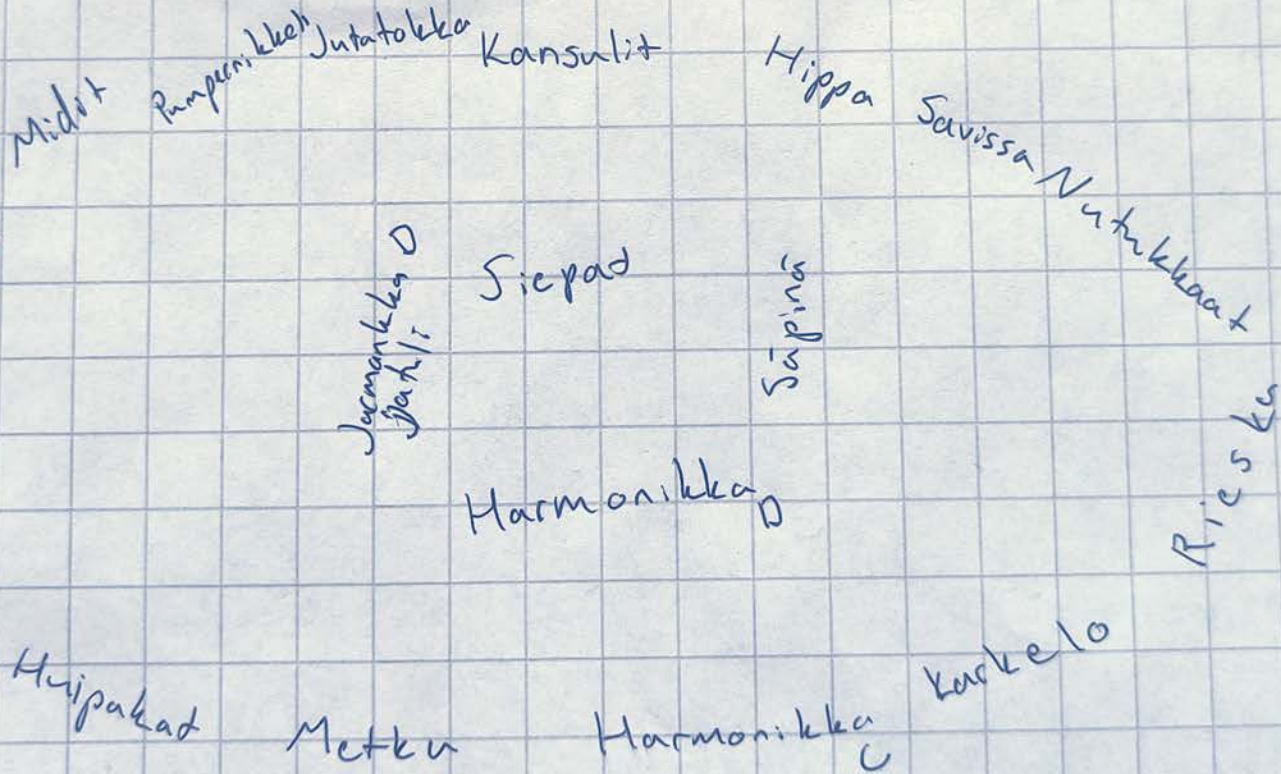 Midit
Pumpernikkeli
Jutatokka
Kansulit
Hippa
Savissa
Nutukkaat
Jarmankka D
Patili
Siepad
Säpinä
Rieska
Harmonikka D
Huipakat
Metku
Harmonikka C
Karkelo